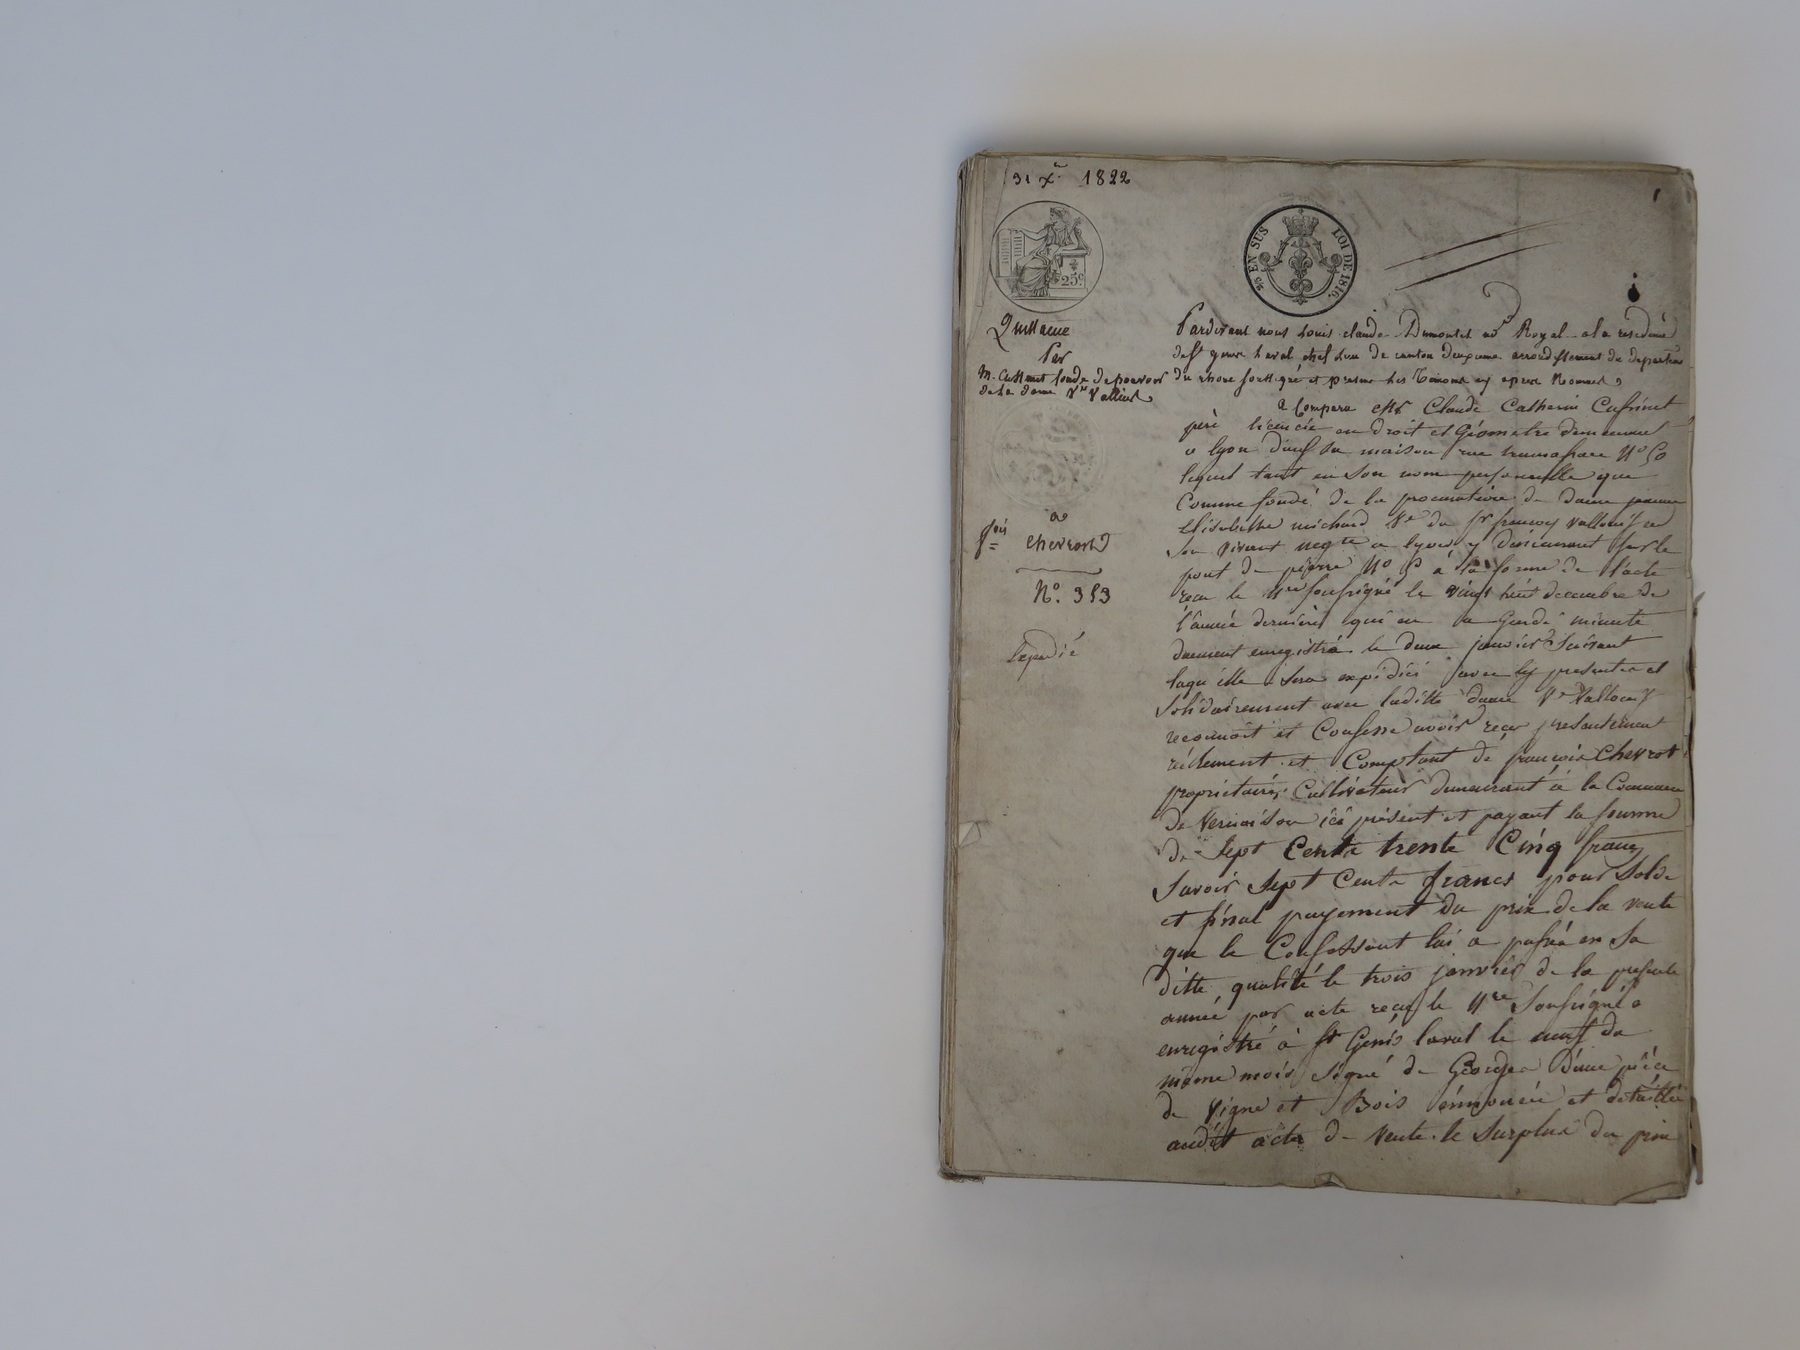 31 Xre 1822
25 c.
25 EN SUS LOI DE 1816.
1
Quittance
Par
M. Cussinet fondé de pouvoir
de la dame Ve Vallouis
a
fois chevrot
N°. 353
Expédié
Pardevant nous Louis claude Dumontet nre Royal a la residence
de st genis Laval chef lieu de canton deuxieme arrondissement du departement
du rhone soussigné et presence des temoins cy apres Nommes
a Comparu Mr Claude Catherin Cussinet
père licencié en droit et Géometre demeurant
a lyon dans sa maison rue N° 50
lequel tant en son nom personnelle que
Comme fondé de la procuration de dame jeanne
Elisabethe michard Ve du sr francois vallouis en
son vivant negte a lyon y demeurant sur le
pont de pierre N° 5 a la forme de l'acte
recu le Nre soussigné le vingt huit decembre de
l'année derniere qui en a Gardé minute
duement enregistré le deux janvier Suivant
laquelle sera expédiée avec les presentes et
solidairement avec laditte dame Ve Vallouis
reconnoit et Confesse avoir recu presentement
réellement et Comptant de francois Chevrot
propriétaire Cultivateur demeurant à la Commune
de Vernaison ici présent et payant la somme
de Sept Cents trente Cinq francs
Savoir Sept Cents francs pour Solde
et final payement du prix de la vente
que le Confessant lui a passée en sa
ditte qualité le trois janvier de la presente
année par acte recu le Nre Soussigné
enregistré à st Genis laval le neuf du
même mois signé de Georges D'une pièce
de Vigne et Bois énnoncée et detaillée
audit acte de vente. le Surplus du prix